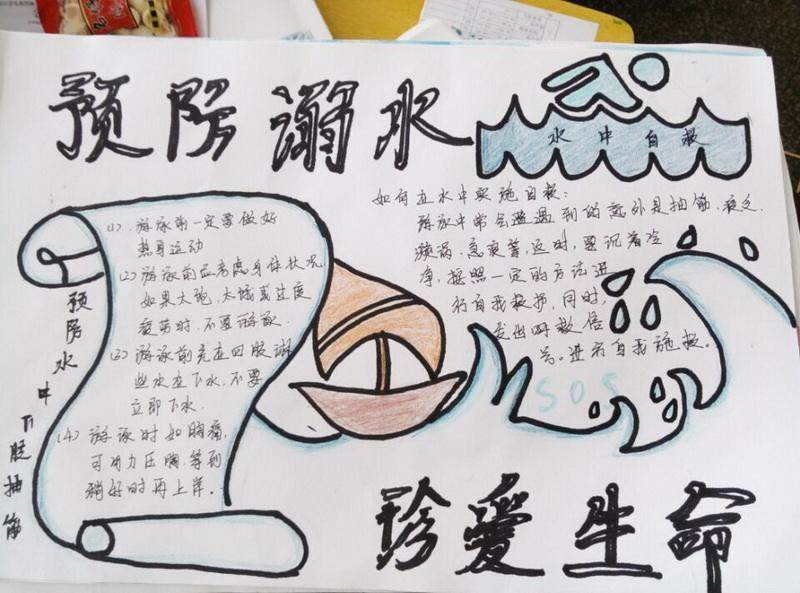 预防溺水
水中自救
如何在水中实施自救:
游泳中常会遭遇到的意外是抽筋、疲乏、
漩涡、急浪等,这时,要沉着冷
净,按照一定的方法进
行自我救护,同时,
发出呼救信
号。进行自我施救。
SOS
(1)、游泳前一定要做好
热身运动
(2)、游泳前应考虑身体状况,
如果太饱、太饿或过度
疲劳时,不要游泳.
(3)、游泳前先在四肢淋
些水在下水,不要
立即下水.
(4)、游泳时如胸痛,
可用力压胸,等到
稍好时再上岸。
预防水中下肢抽筋
珍爱生命